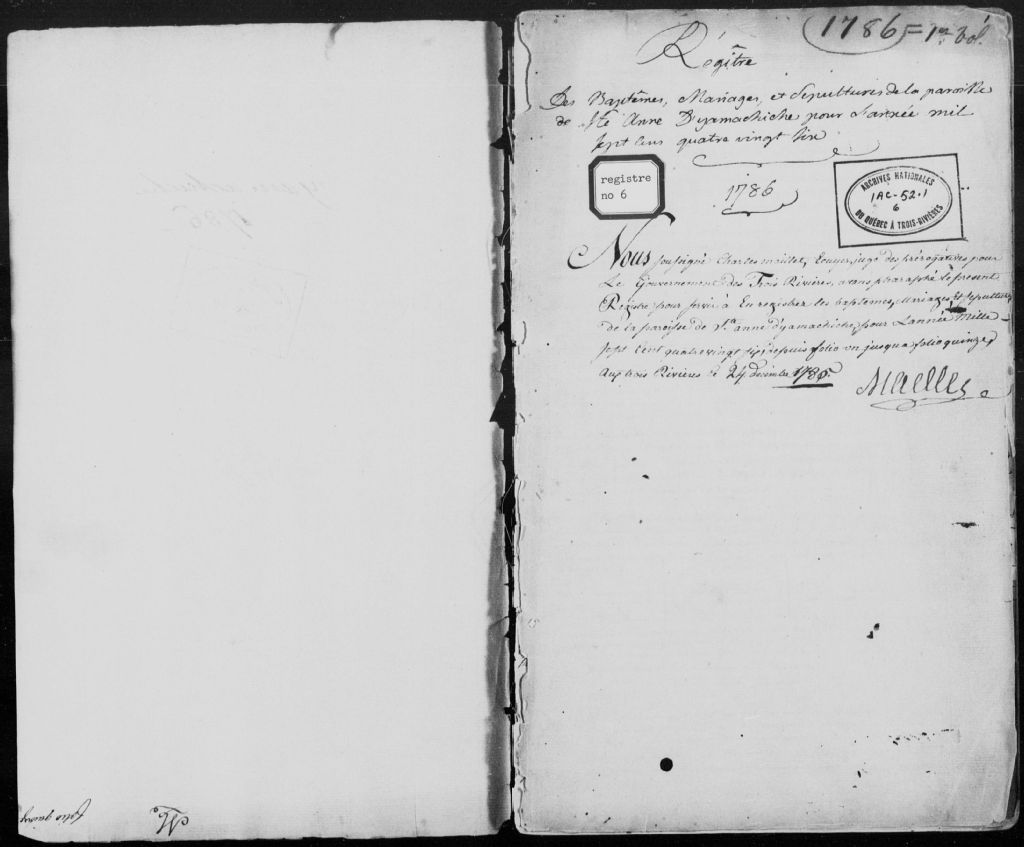 1786 = 1er Vol.
Régître
Des Baptêmes, Mariages, et Sépultures de la paroisse
de Ste Anne D'yamachiche pour l'année mil
sept cens quatre vingt six
registre
no 6
1786
ARCHIVES NATIONALES
1AC-52.1
6
DU QUÉBEC À TROIS-RIVIÈRES
Nous soussigné Charles maillet, Ecuyer, juge des prérogatives pour
Le Gouvernement des Trois Rivières, avons pharaphé le present
Registre pour servir à Enregistrer les baptemes, Mariages Et sepultures
de la paroisse de Ste anne d'yamachiche, pour L'année Mille
sept cent quatre vingt six, depuis folio un jusqu'a folio quinze,
Aux trois Rivières ce 24 decembre 1785.
folio quinze